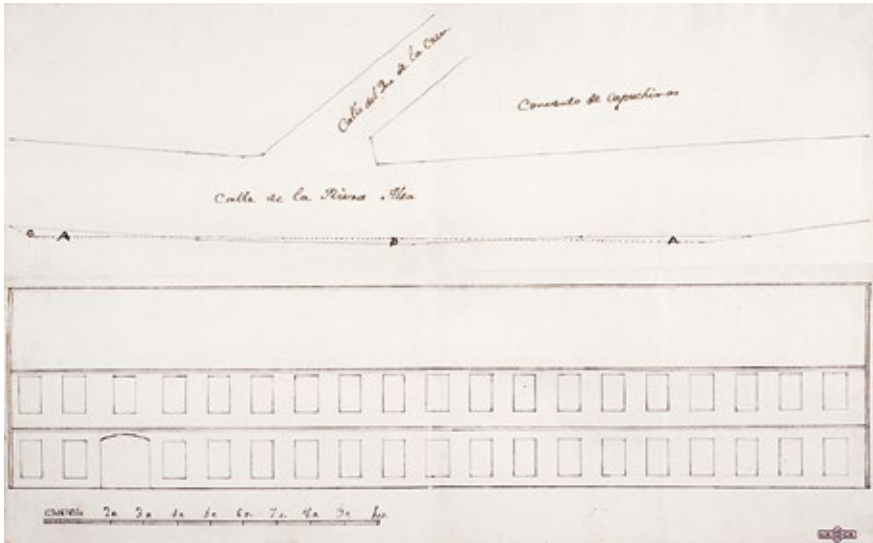 Calle del de la Cruz
Convento de Capuchinos
Calle de la Rivera Alta
C A B A A
20 30 40 50 60 70 80 90